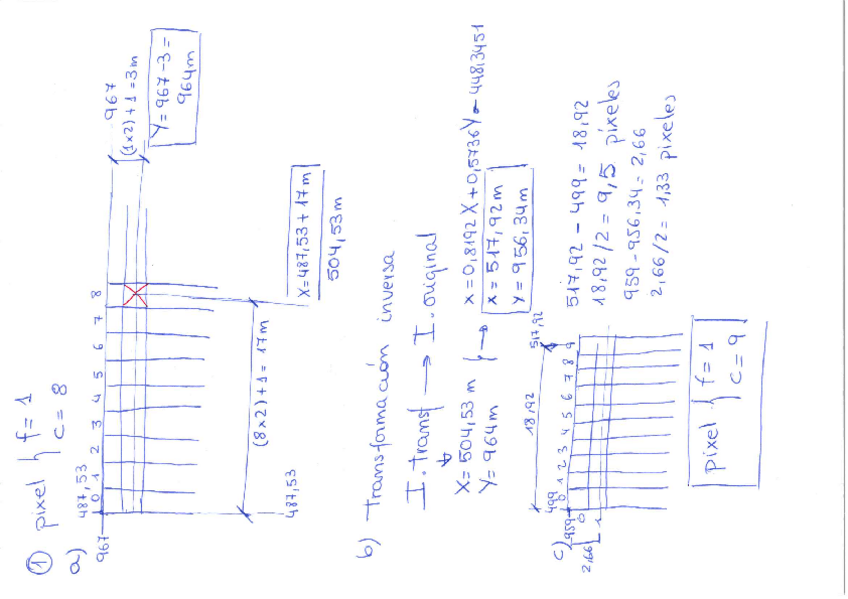 ① pixel { f = 1
c = 8
a)
487,53
967
0 1 2 3 4 5 6 7 8
967
(1x2)+1 = 3m
Y = 967-3 =
964m
(8x2)+1 = 17m
487,53
X = 487,53 + 17m
504,53m
b) Transformación inversa
I. transf → I. original
X = 504,53 m
Y = 964m
x = 0,8192 X + 0,5736 Y - 448,3451
x = 517,92m
y = 956,34m
c)
499
959
517,92
18,92
0 1 2 3 4 5 6 7 8 9
0
1
2,66
517,92 - 499 = 18,92
18,92/2 = 9,5 píxeles
959 - 956,34 = 2,66
2,66/2 = 1,33 píxeles
pixel { f = 1
c = 9